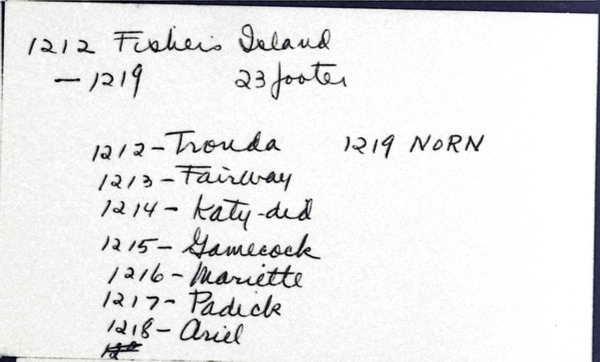 1212 Fishers Island
- 1219 23 footer
1212 - Tronda 1219 NORN
1213 - Fairway
1214 - Katy-did
1215 - Gamecock
1216 - Mariette
1217 - Padick
1218 - Ariel